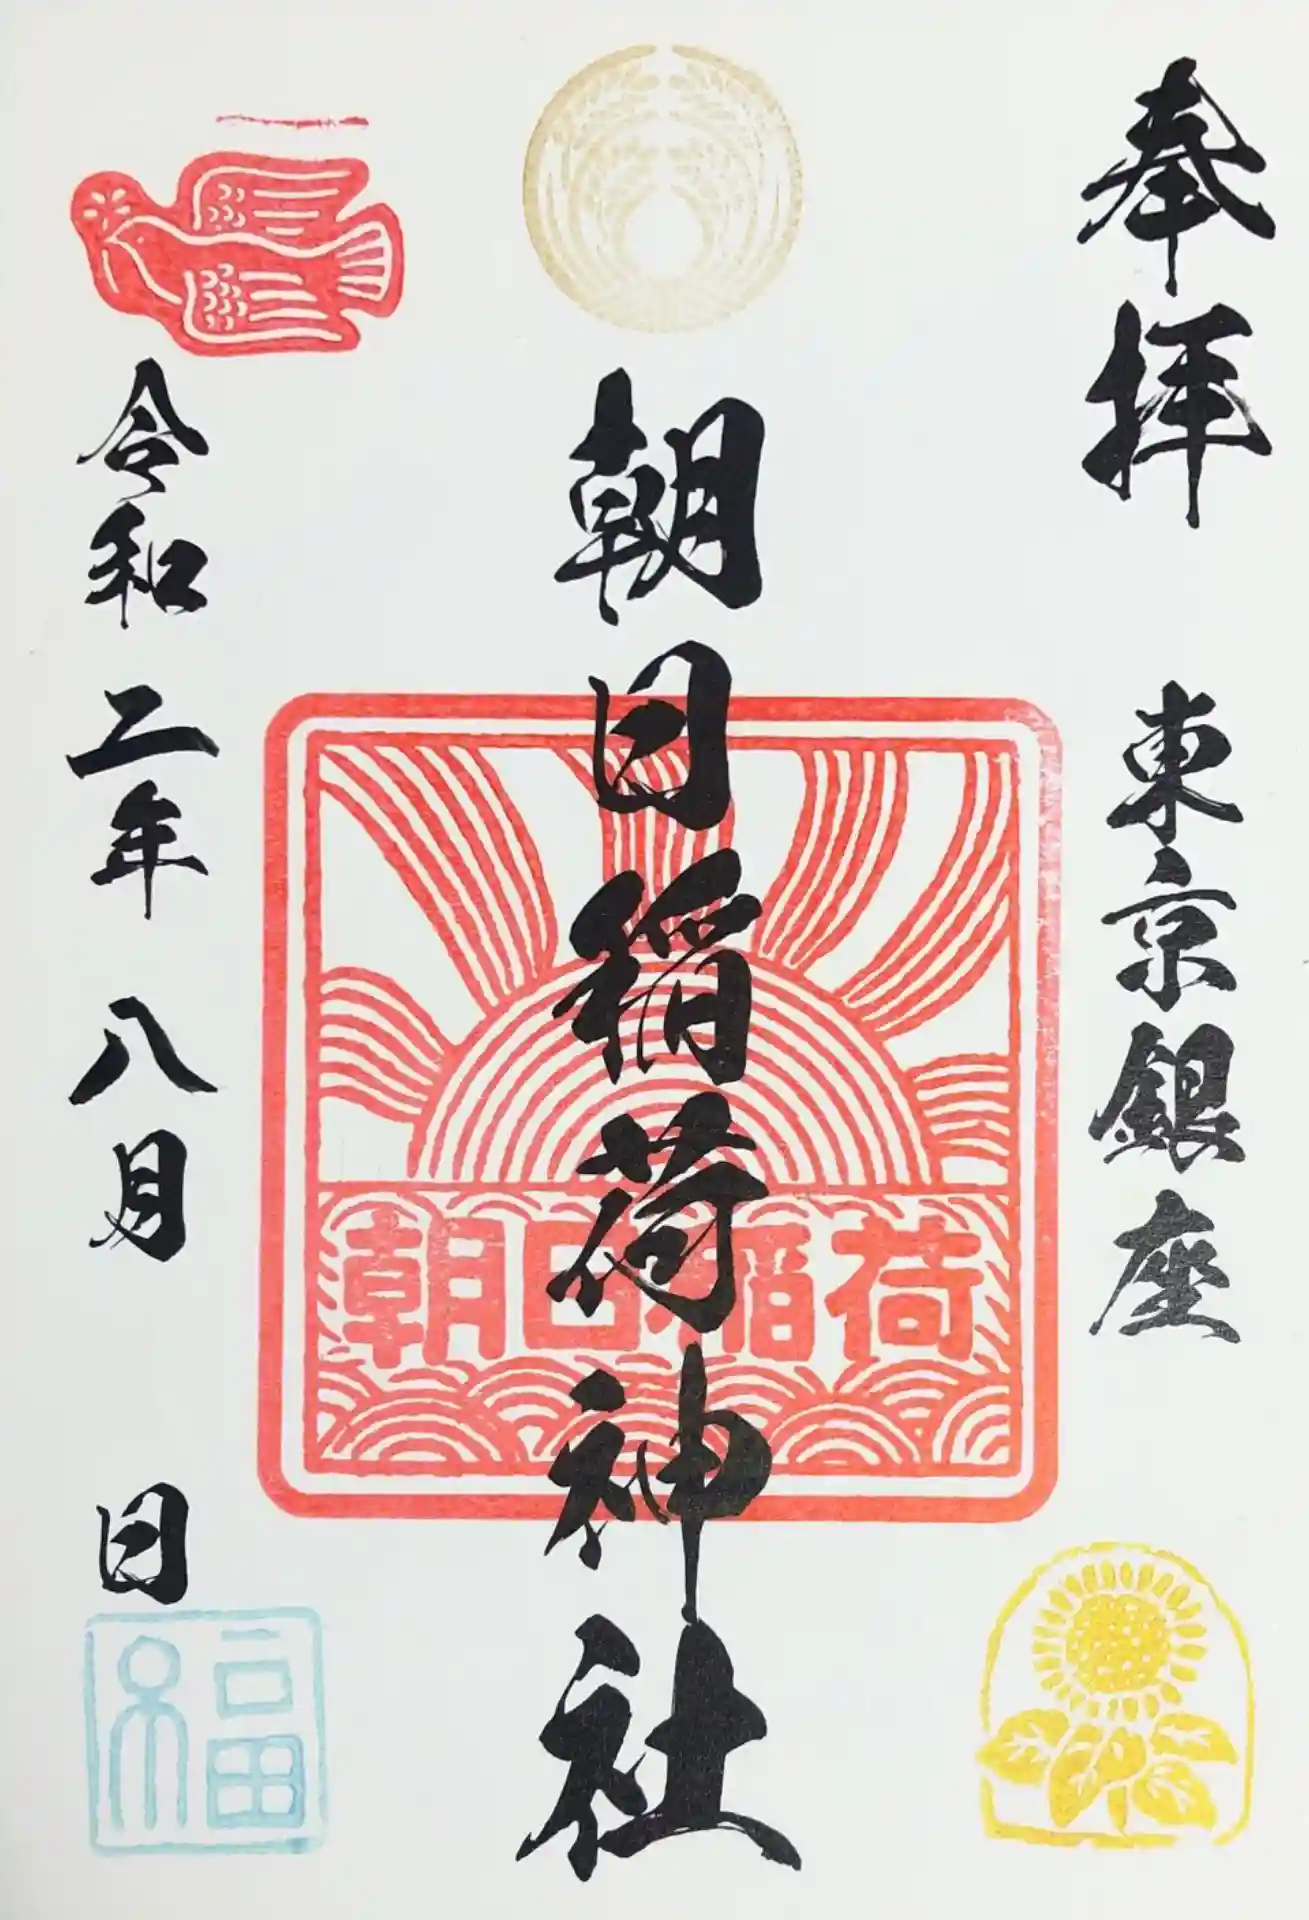 奉拝
東京銀座
朝日稲荷神社
朝日稲荷
令和二年八月 日
福